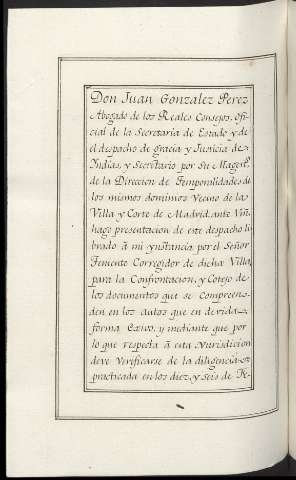 Don Juan Gonzalez Perez
Abogado de los Reales Consejos, Ofi-
cial de la Secretaria de Estado y de
el despacho de gracia y Justicia de
Yndias, y Secretario por Su Magd.
de la Direccion de Temporalidades de
los mismos dominios Vecino de la
Villa y Corte de Madrid, ante Vm
hago presentacion de este despacho li
brado â mi ynstancia por el Señor
Teniente Corregidor de dicha Villa
para la Confrontacion, y Cotejo de
los documentos que se Compreen-
den en los autos que en devida
forma Exivo, y mediante que por
lo que respecta â esta Jurisdicion
deve Verificarse de la diligencia
practicada en los diez, y seis de